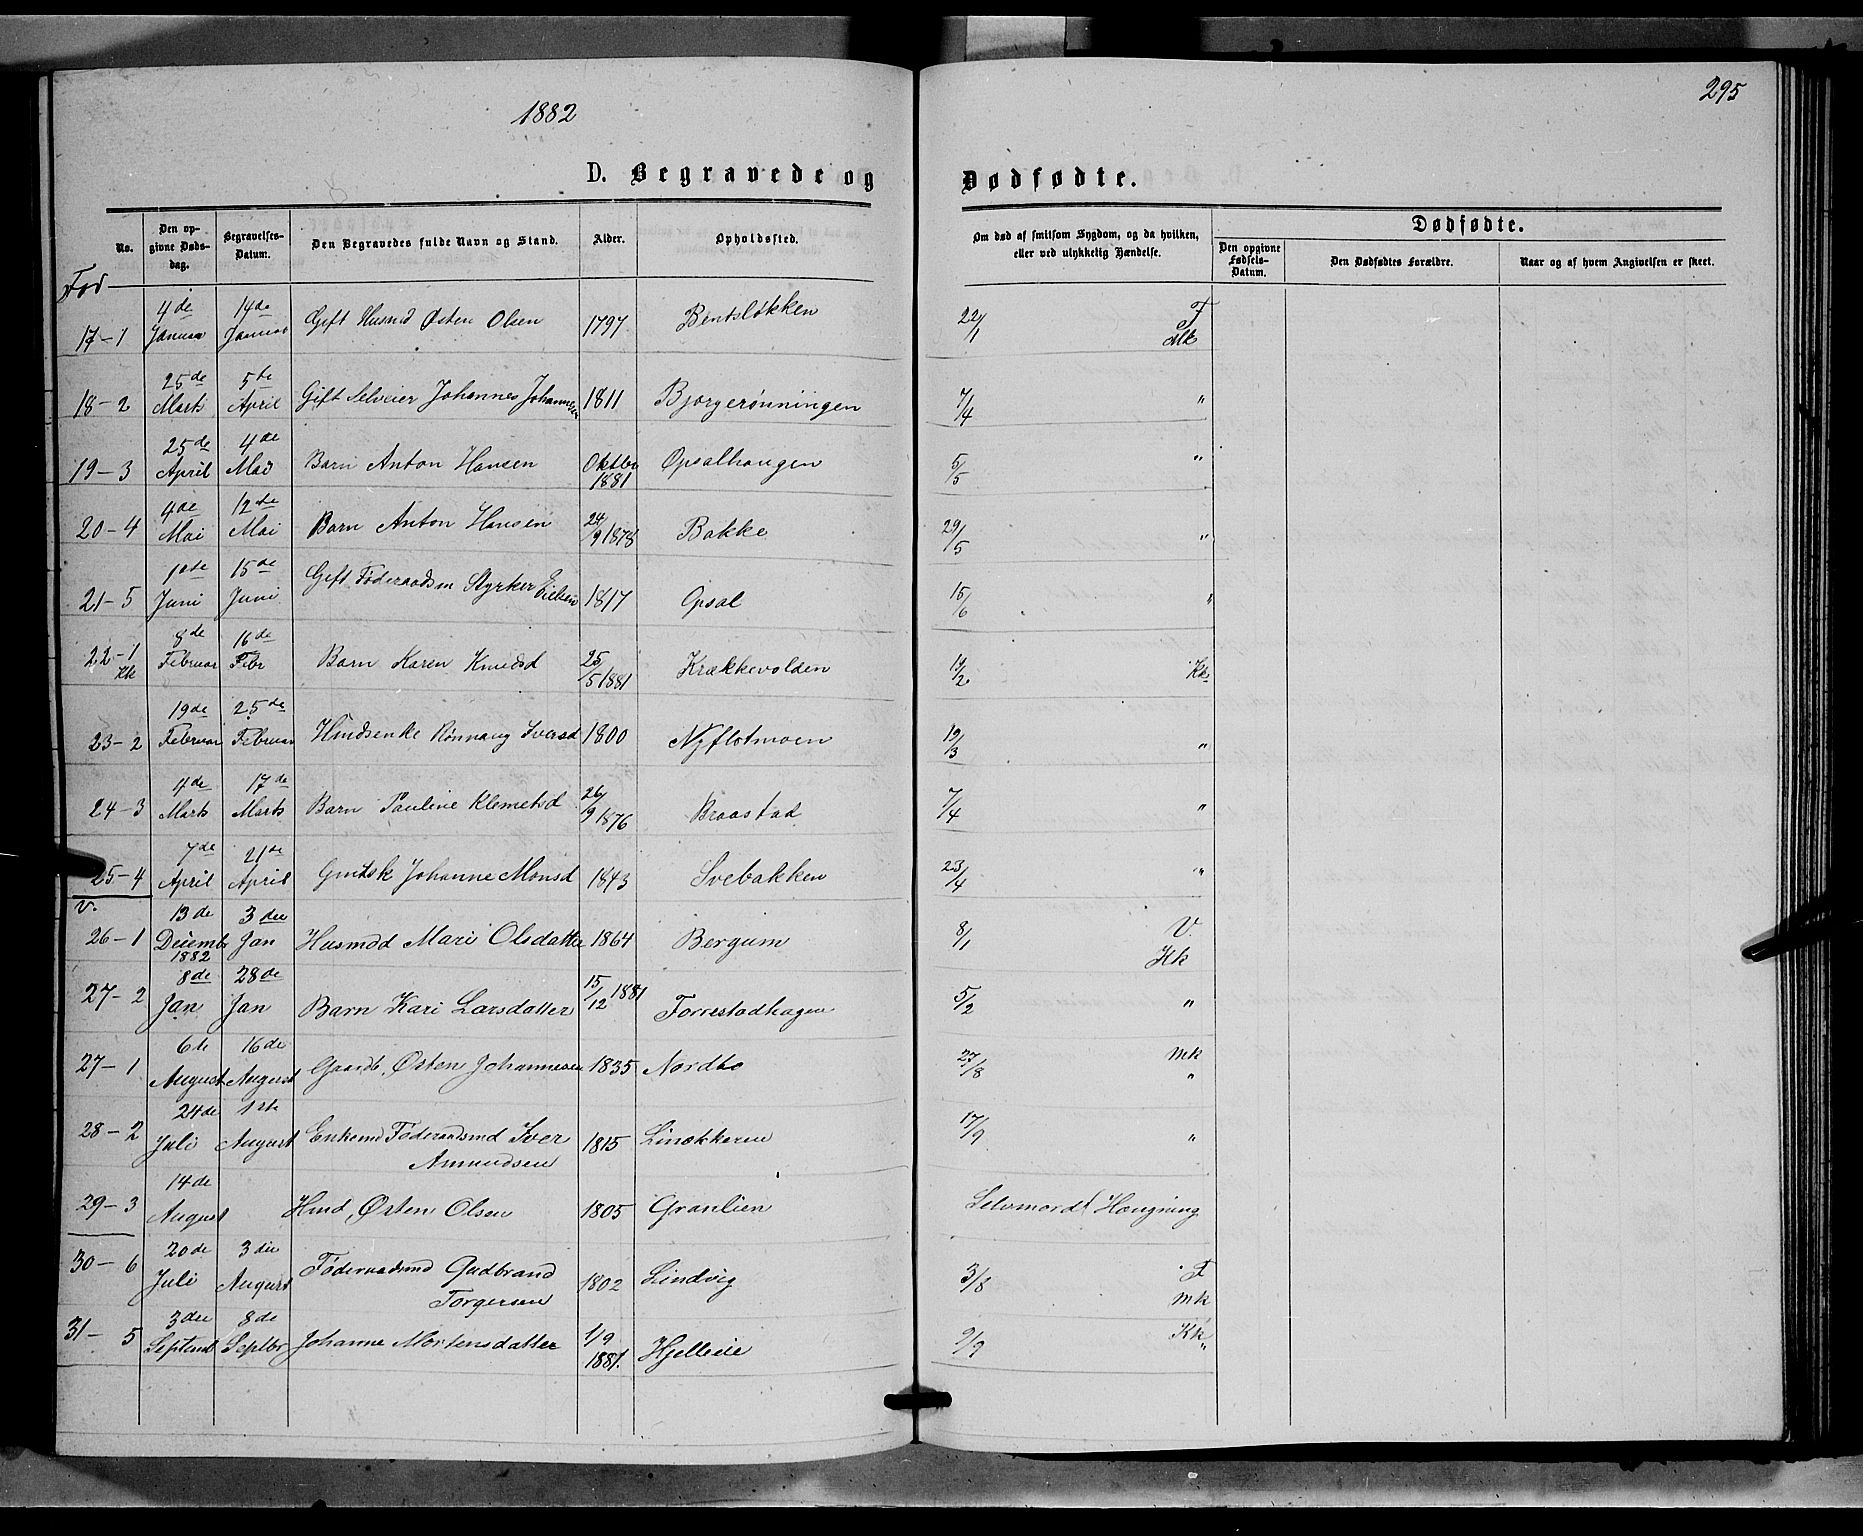 1882
295
D. Begravede og Dødfødte.
No. Den opgivne Dødsdag. Begravelses-Datum. Den Begravedes fulde Navn og Stand. Alder. Opholdssted. Om død af smitsom Sygdom, og da hvilken, eller ved ulykkelig Hændelse. Dødfødte. Den opgivne Fødsels-Datum. Den Dødfødtes Forældre. Naar og af hvem Angivelsen er skeet.
17-1 4de Januar 14de Januar Gift Husmd Østen Olsen 1797 Bentsløkken 22/1 F
18-2 25de Marts 5te April Gift Selveier Johannes Johannesen 1811 Bjorgerønningen 7/4 "
19-3 25de April 4de Mai Barn Anton Hansen Oktbr 1881 Opsalhaugen 5/5 "
20-4 4de Mai 12te Mai Barn Anton Hansen 24/9 1878 Bakke 29/5 "
21-5 Juni 15de Juni Gift Føderaadsm Styrker Eielsen 1817 Opsal 15/6 "
22-1 Kk 8de Februar 16de Febr Barn Karen Knudsd 25/5 1881 Krækkevolden 19/2 Kk
23-2 19de Februar 25de Februar Rønnaug Iversd 1800 Nyflotmoen 19/3 "
24-3 4de Marts 17de Marts Barn Pauline Klemetsd 26/9 1876 Braastad 7/4 "
25-4 7de April 21de April Johanne Monsd 1843 Svebakken 23/4 "
V.
26-1 13de Decembr 3die Jan Husmdd Mari Olsdatter 1864 Bergum 8/1 V. Kk
27-2 1882 8de Jan 28de Jan Barn Kari Larsdatter 15/12 1881 Forrestadhagen 5/2 "
27-1 6te August 16de August Gaardb. Østen Johannesen 1835 Nordbo 27/8 Mk "
28-2 24de Juli 1ste August Enkemd Føderaadsmd Iver Amundsen 1815 Linækkeren 17/9 "
29-3 14de August Hmd, Østen Olsen 1805 Granlien Selvmord Hængning
30-6 20de Juli 3die August Føderaadsmd Gudbrand Torgersen 1802 Lindvig 3/8 F Mk
31-5 3die Septemb 8de Septbr Johanne Mortensdatter 1/9 1881. Hjelleie 9/9 Kk "